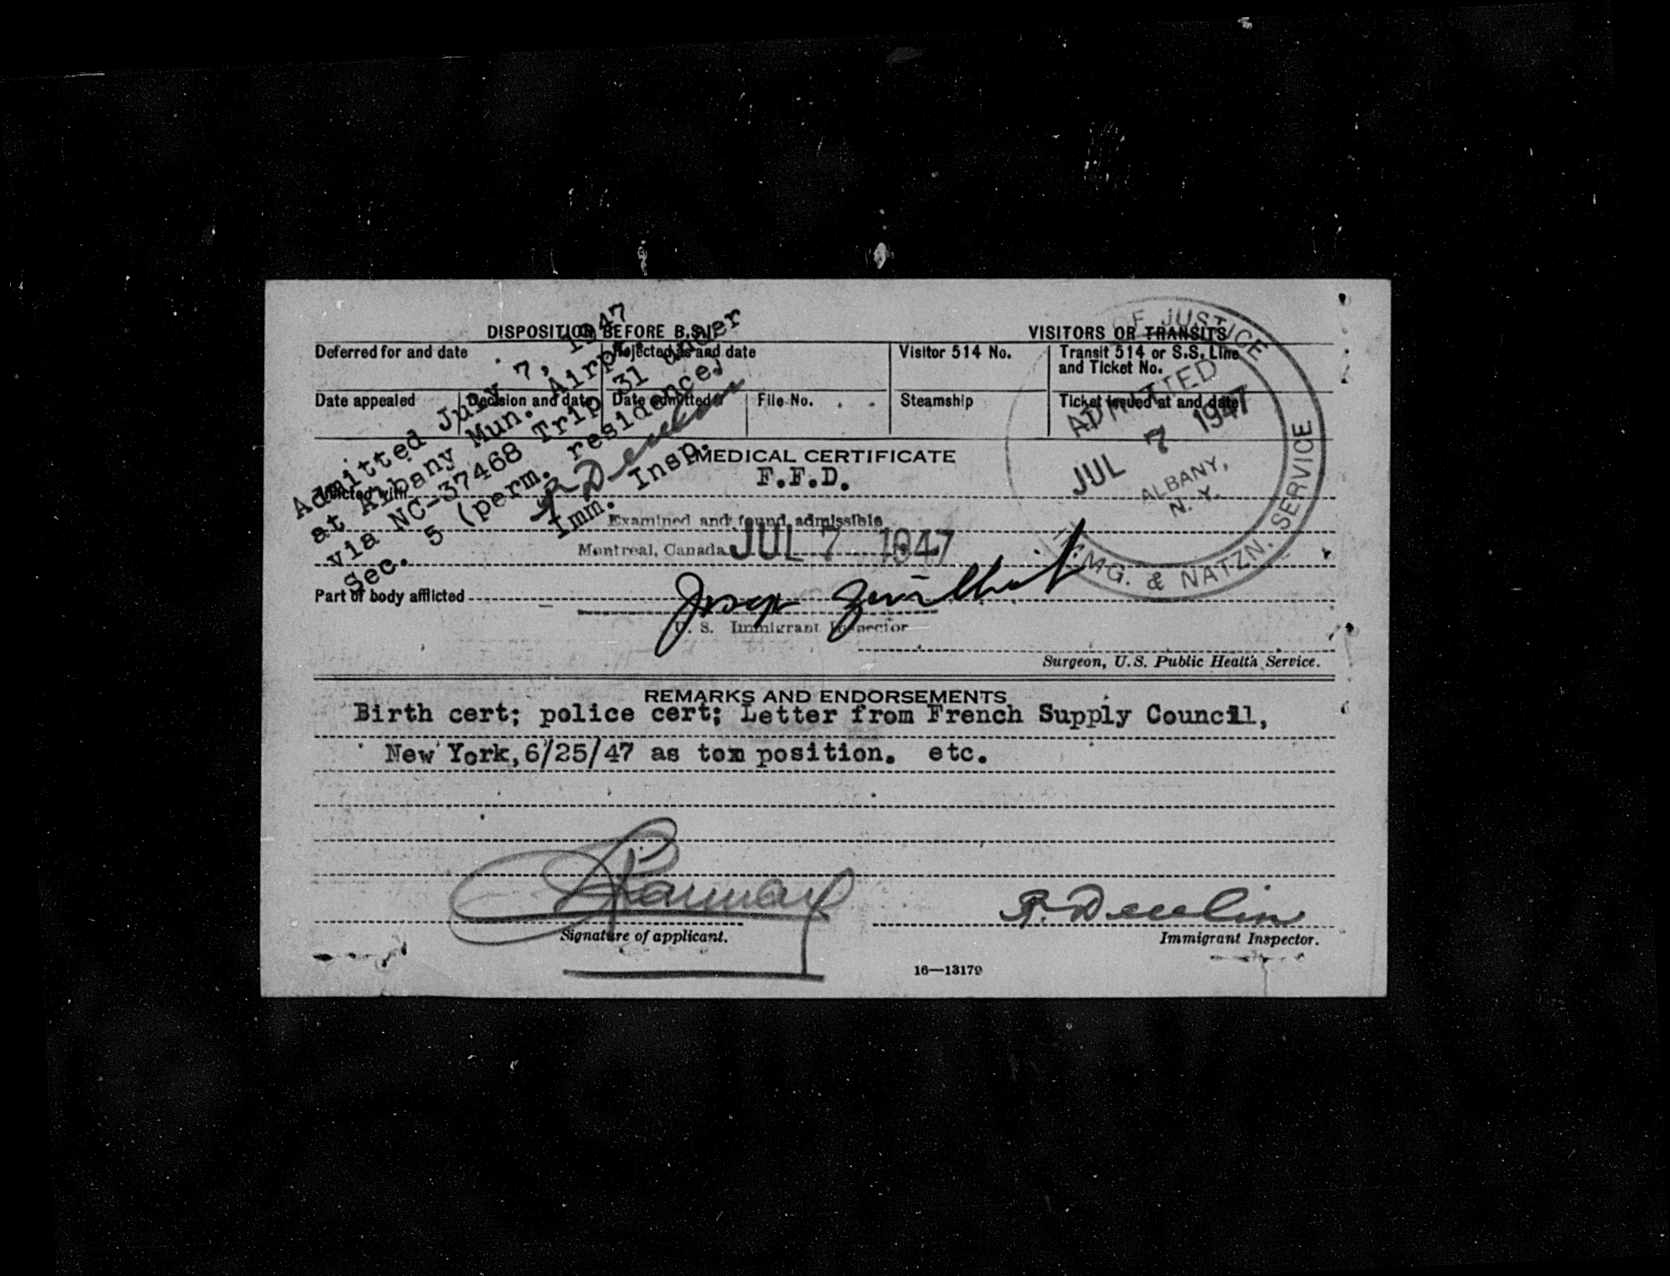 DISPOSITION BEFORE B.S.I.
VISITORS OR TRANSITS
Deferred for and date
Rejected as and date
Visitor 514 No.
Transit 514 or S.S. Line
and Ticket No.
Date appealed
Decision and date
Date admitted
File No.
Steamship
Ticket issued at and date
Admitted July 7, 1947
at Albany Mun. Airpt.
via NC-37468 Trip 31 under
Sec. 5 (perm. residence)
Imm. Insp.
OF JUSTICE
ADMITTED
JUL 7 1947
ALBANY,
N. Y.
IMMG. & NATZN. SERVICE
MEDICAL CERTIFICATE
F.F.D.
Afflicted with
Examined and found admissible
Montreal, Canada JUL 7 1947
Part of body afflicted
U. S. Immigrant Inspector
Surgeon, U.S. Public Health Service.
REMARKS AND ENDORSEMENTS
Birth cert; police cert; Letter from French Supply Council,
New York, 6/25/47 as tom position. etc.
R. Devlin
Signature of applicant.
Immigrant Inspector.
16—13179